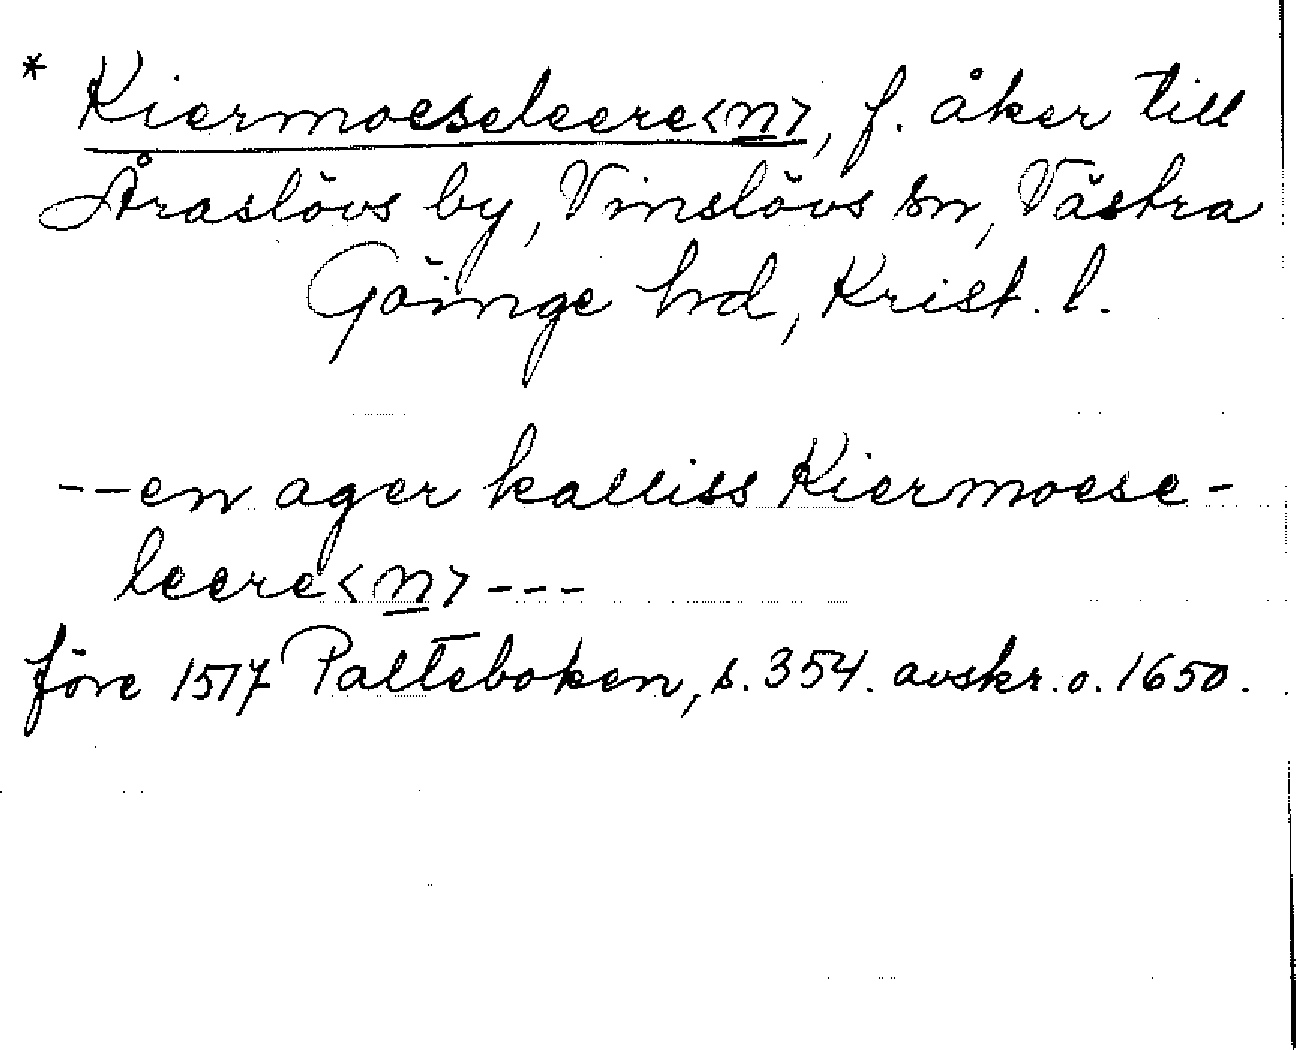 * Kiermoeseleere<n>, f. åker till
Åraslövs by, Vinslövs sn, Västra
Göinge hd, Krist. l.
--en ager kalliss Kiermoese-
leere<n>---
före 1517 Palteboken, s. 354. avskr. o. 1650.